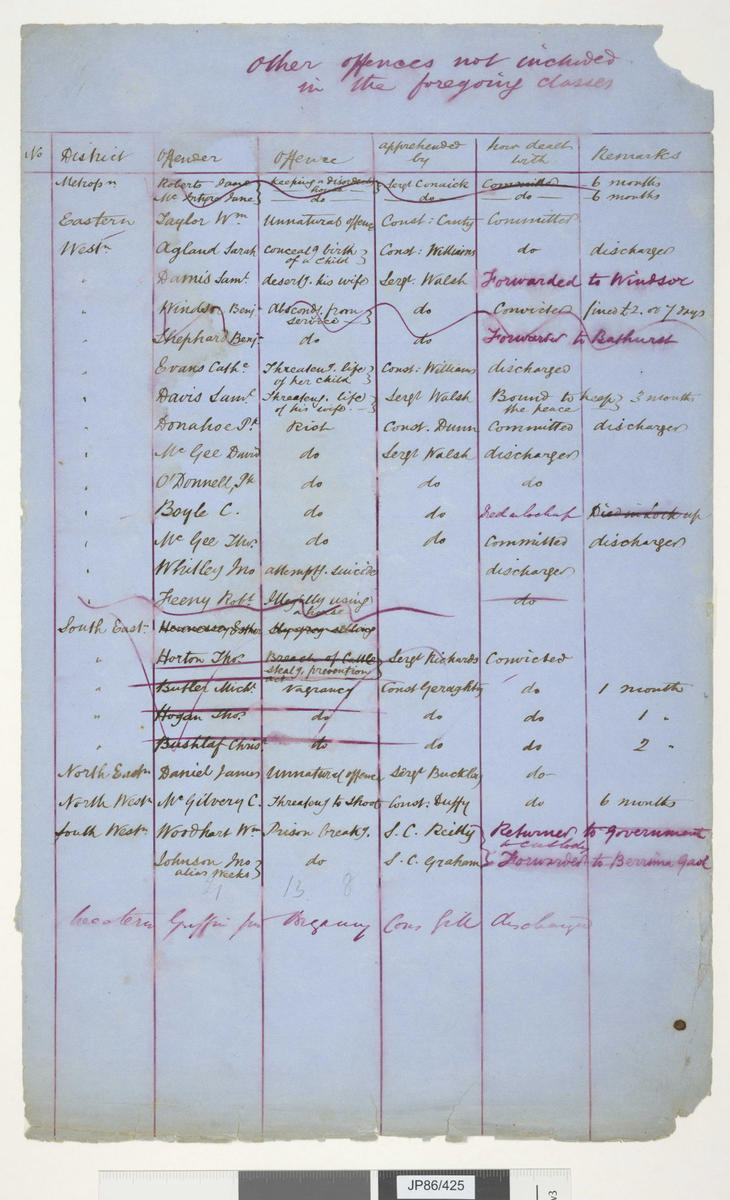 Other offences not included
in the foregoing classes
No District Offender Offence apprehended by how dealt with Remarks
Metropn Roberts Jane keeping a disorderly house Sergt Conwick Committed 6 months
McIntyre Jane do do do 6 months
Eastern Taylor Wm Unnatural offence Const: Canty Committed
Westn Agland Sarah Conceal.g birth of a child Const: Williams do discharged
" Damis Saml. desert.g his wife Sergt. Walsh Forwarded to Windsor
" Windsor Benj Abscond.g from service do Convicted fined £2. or 7 days
" Shephard Benj do do Forwarded to Bathurst
" Evans Cathe Threaten.g life of her child Const: Williams discharged
" Davis Saml Threaten.g life of his wife Sergt Walsh Bound to keep the peace 3 months
" Donahoe Pk Riot Const. Dunn Committed discharged
" McGee David do Sergt Walsh discharged
" O'Donnell, Pk do do do
" Boyle C. do do Died in Lock up
" McGee Thos. do do Committed discharged
" Whitley Jno attempt.g suicide discharged
" Feeny Robt. Illegally using a horse do
South Eastn Hennessy Esther Sly grog selling
" Horton Thos. Breach of Cattle steal.g prevention act Sergt Richards Convicted
" Butler Michl. Vagrancy Const Geraghty do 1 month
" Hogan Thos. do do do 1 "
" Bushlaf Chris do do do 2 "
North Eastn Daniel James Unnatural offence Sergt Buckley do
North Westn McGilvery C. Threaten.g to Shoot Const: Duffy do 6 months
South Westn Woodhart Wm Prison break.g. S. C. Reilly Returned to Government to custody
Johnson Jno alias Weeks do S. C. Graham Forwarded to Berrima Gaol
21 13 8
Western Griffin Jno Bigamy Cons Gill discharged
JP86/425